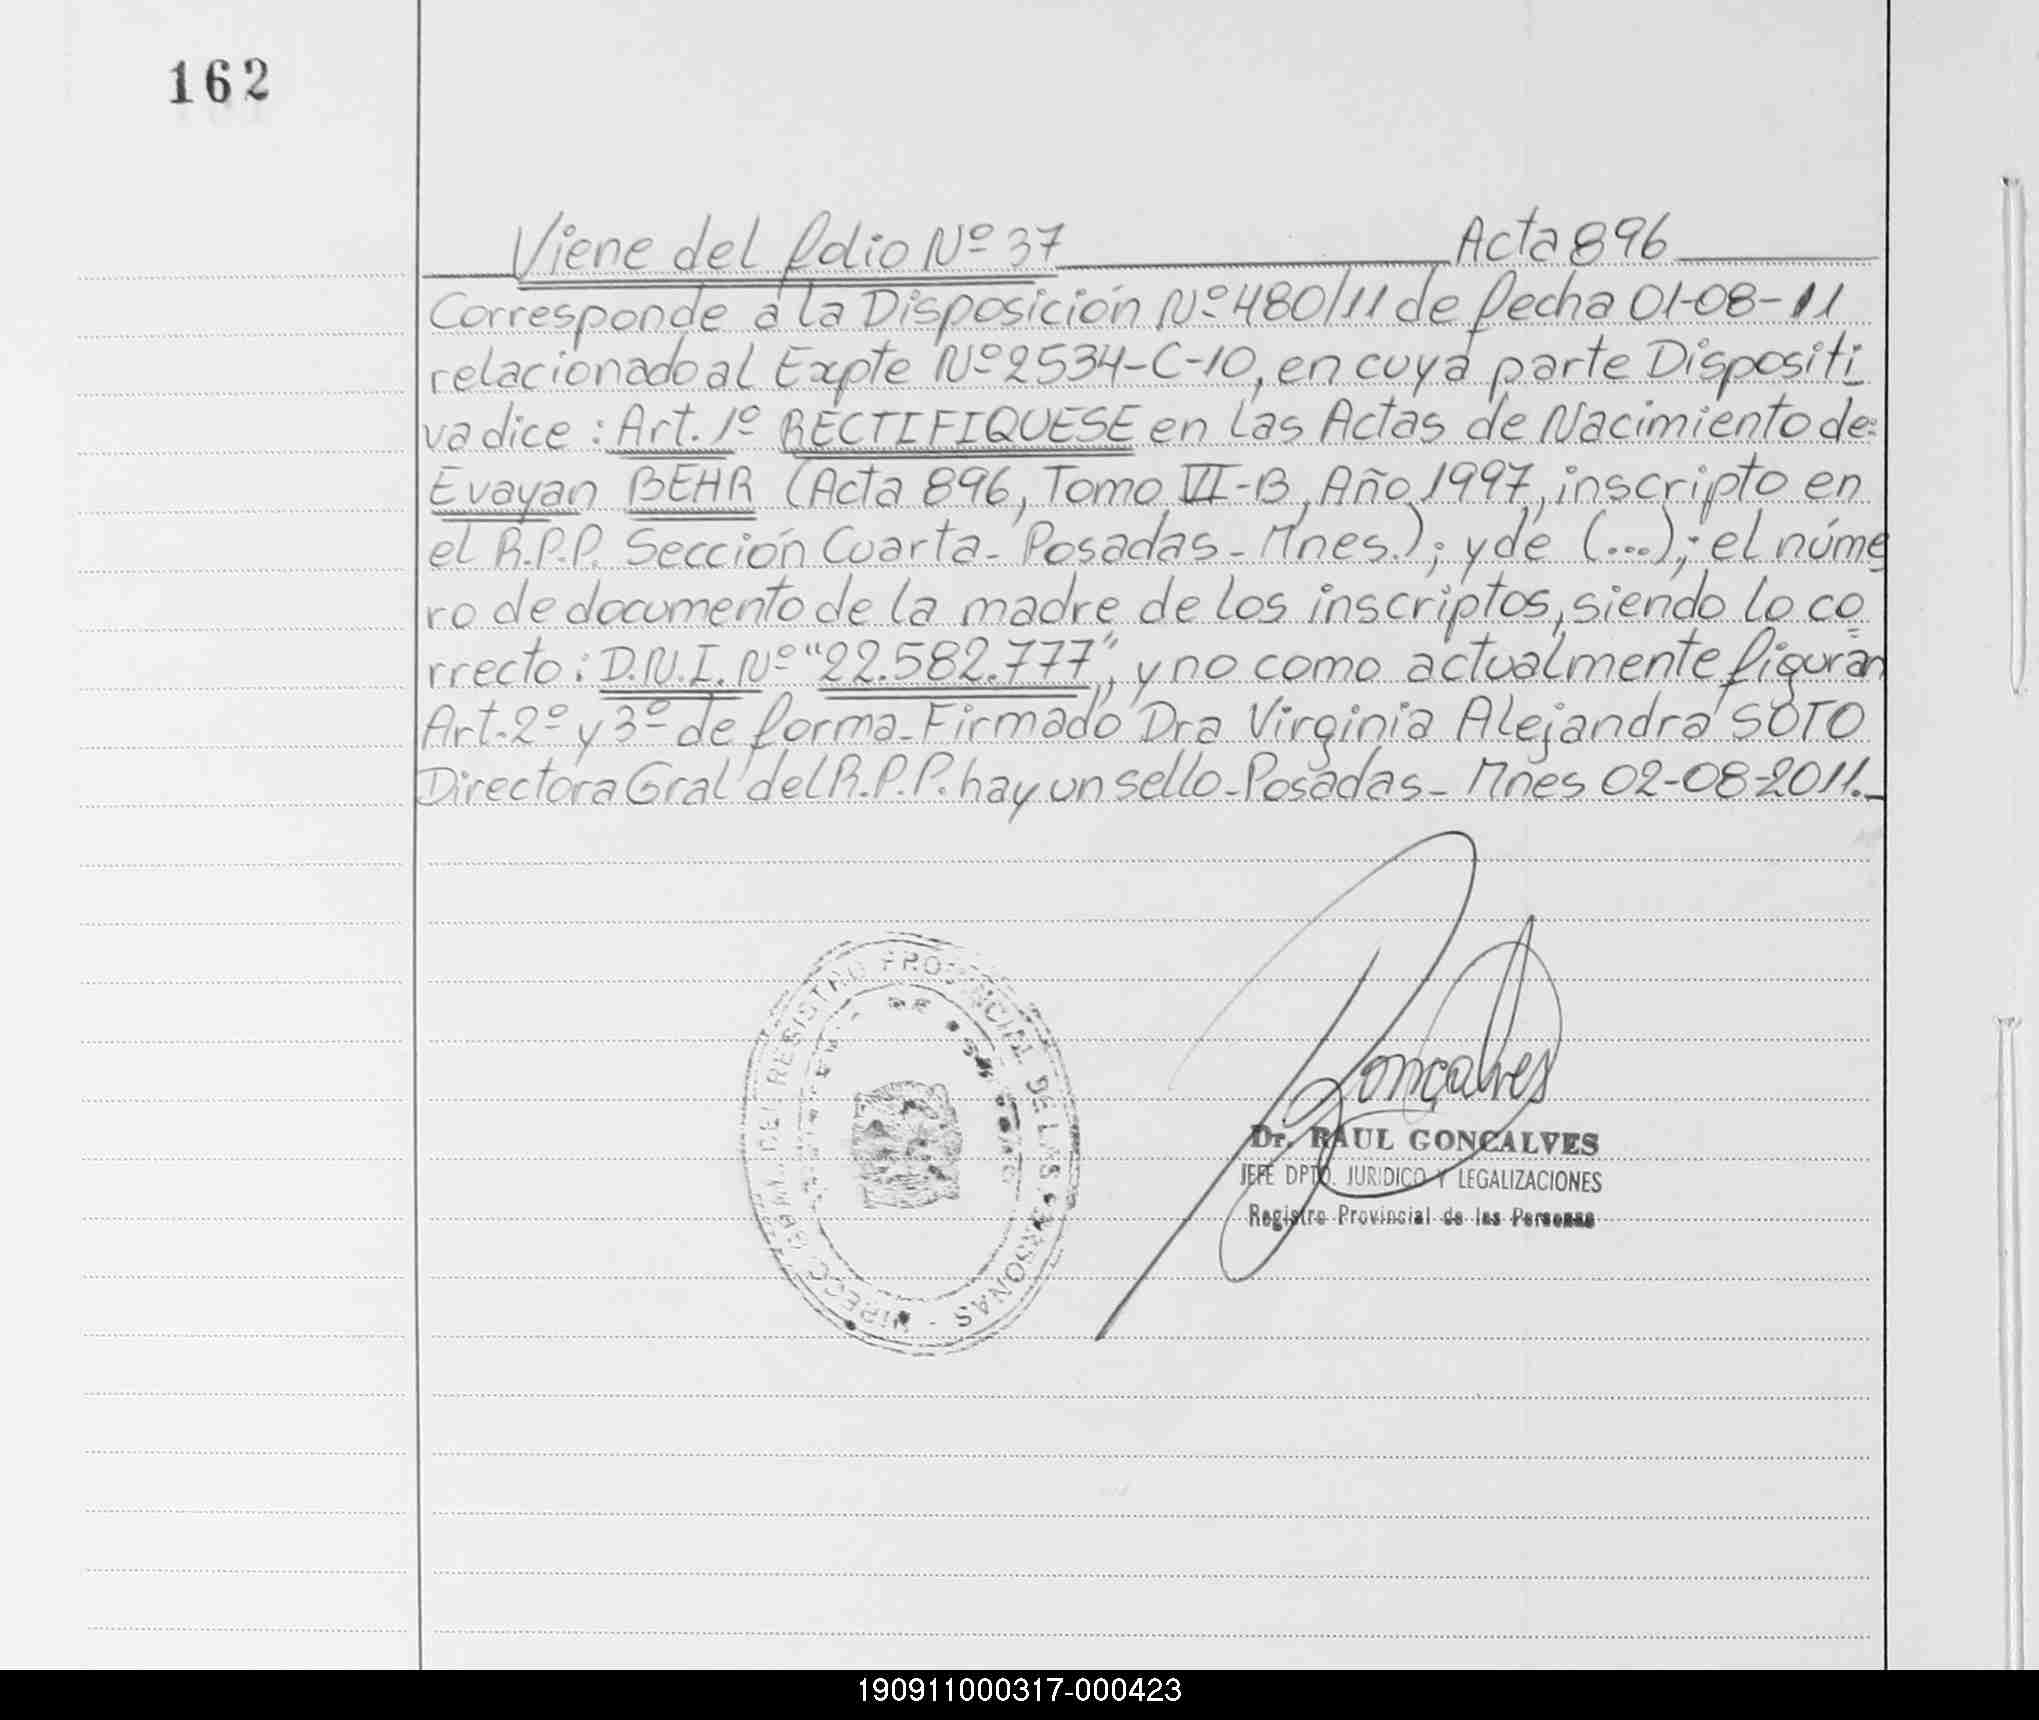 162
Viene del folio Nº 37 Acta 896
Corresponde a la Disposición Nº 480/11 de fecha 01-08-11
relacionado al Expte Nº 2534-C-10, en cuya parte Dispositi
va dice: Art. 1º RECTIFIQUESE en las Actas de Nacimiento de:
Evayan BEHR (Acta 896, Tomo VI-B, Año 1997, inscripto en
el R.P.P. Sección Cuarta - Posadas - Mnes.); y de (...); el núme
ro de documento de la madre de los inscriptos, siendo lo co
rrecto: D.N.I. Nº "22.582.777", y no como actualmente figuran
Art. 2º y 3º de forma - Firmado Dra Virginia Alejandra SOTO
Directora Gral del R.P.P. hay un sello - Posadas - Mnes 02-08-2011.-
DIRECC. GRAL. DEL REGISTRO PROVINCIAL DE LAS PERSONAS -
Gonçalves
Dr. RAUL GONCALVES
JEFE DPTO. JURIDICO Y LEGALIZACIONES
Registro Provincial de las Personas
190911000317-000423